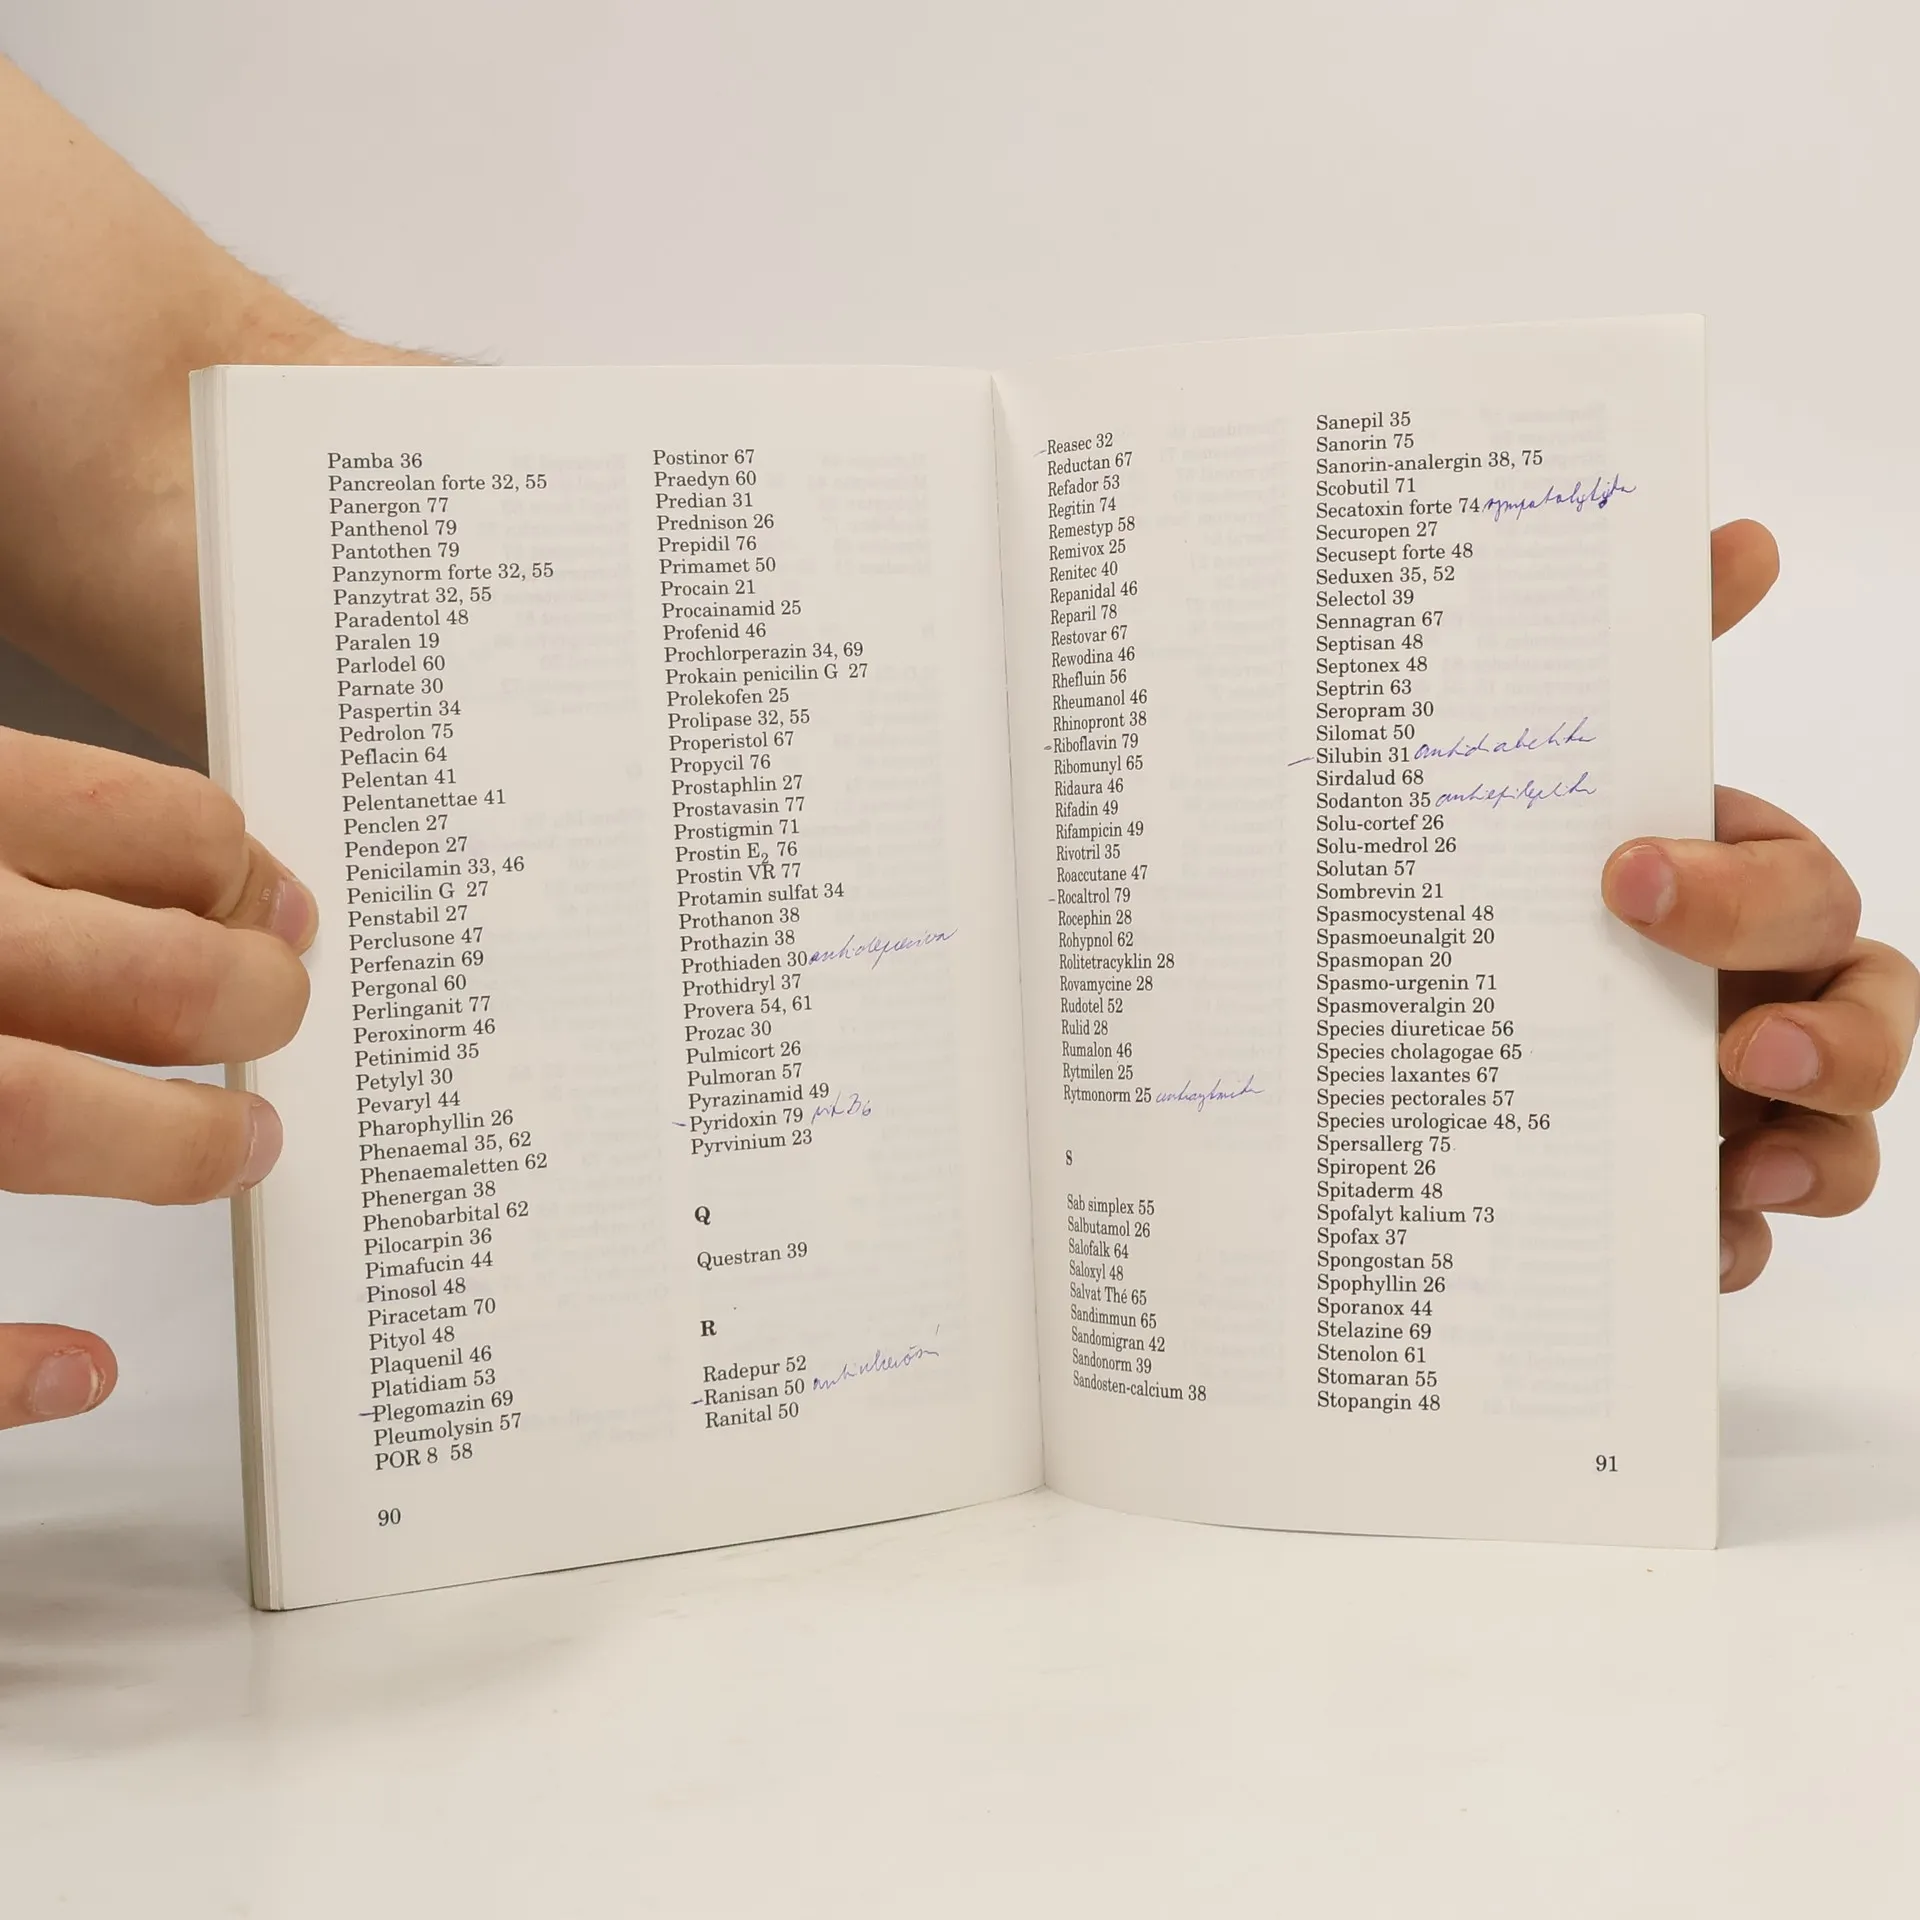 Pamba 36
Pancreolan forte 32, 55
Panergon 77
Panthenol 79
Pantothen 79
Panzynorm forte 32, 55
Panzytrat 32, 55
Paradentol 48
Paralen 19
Parlodel 60
Parnate 30
Paspertin 34
Pedrolon 75
Peflacin 64
Pelentan 41
Pelentanettae 41
Penclen 27
Pendepon 27
Penicilamin 33, 46
Penicilin G 27
Penstabil 27
Perclusone 47
Perfenazin 69
Pergonal 60
Perlinganit 77
Peroxinorm 46
Petinimid 35
Petylyl 30
Pevaryl 44
Pharophyllin 26
Phenaemal 35, 62
Phenaemaletten 62
Phenergan 38
Phenobarbital 62
Pilocarpin 36
Pimafucin 44
Pinosol 48
Piracetam 70
Pityol 48
Plaquenil 46
Platidiam 53
Plegomazin 69
Pleumolysin 57
POR 8 58
90
Postinor 67
Praedyn 60
Predian 31
Prednison 26
Prepidil 76
Primamet 50
Procain 21
Procainamid 25
Profenid 46
Prochlorperazin 34, 69
Prokain penicilin G 27
Prolekofen 25
Prolipase 32, 55
Properistol 67
Propycil 76
Prostaphlin 27
Prostavasin 77
Prostigmin 71
Prostin E₂ 76
Prostin VR 77
Protamin sulfat 34
Prothanon 38
Prothazin 38
Prothiaden 30 antidepresiva
Prothidryl 37
Provera 54, 61
Prozac 30
Pulmicort 26
Pulmoran 57
Pyrazinamid 49
Pyridoxin 79 vit B6
Pyrvinium 23
Q
Questran 39
R
Radepur 52
Ranisan 50
Ranital 50
Reasec 32
Reductan 67
Refador 53
Regitin 74
Remestyp 58
Remivox 25
Renitec 40
Repanidal 46
Reparil 78
Restovar 67
Rewodina 46
Rhefluin 56
Rheumanol 46
Rhinopront 38
Riboflavin 79
Ribomunyl 65
Ridaura 46
Rifadin 49
Rifampicin 49
Rivotril 35
Roaccutane 47
Rocaltrol 79
Rocephin 28
Rohypnol 62
Rolitetracyklin 28
Rovamycine 28
Rudotel 52
Rulid 28
Rumalon 46
Rytmilen 25
Rytmonorm 25
S
Sab simplex 55
Salbutamol 26
Salofalk 64
Saloxyl 48
Salvat Thé 65
Sandimmun 65
Sandomigran 42
Sandonorm 39
Sandosten-calcium 38
Sanepil 35
Sanorin 75
Sanorin-analergin 38, 75
Scobutil 71
Secatoxin forte 74 sympatolytika
Securopen 27
Secusept forte 48
Seduxen 35, 52
Selectol 39
Sennagran 67
Septisan 48
Septonex 48
Septrin 63
Seropram 30
Silomat 50
Silubin 31 antidiabetika
Sirdalud 68
Sodanton 35 antiepileptika
Solu-cortef 26
Solu-medrol 26
Solutan 57
Sombrevin 21
Spasmocystenal 48
Spasmoeunalgit 20
Spasmopan 20
Spasmo-urgenin 71
Spasmoveralgin 20
Species diureticae 56
Species cholagogae 65
Species laxantes 67
Species pectorales 57
Species urologicae 48, 56
Spersallerg 75
Spiropent 26
Spitaderm 48
Spofalyt kalium 73
Spofax 37
Spongostan 58
Spophyllin 26
Sporanox 44
Stelazine 69
Stenolon 61
Stomaran 55
Stopangin 48
91